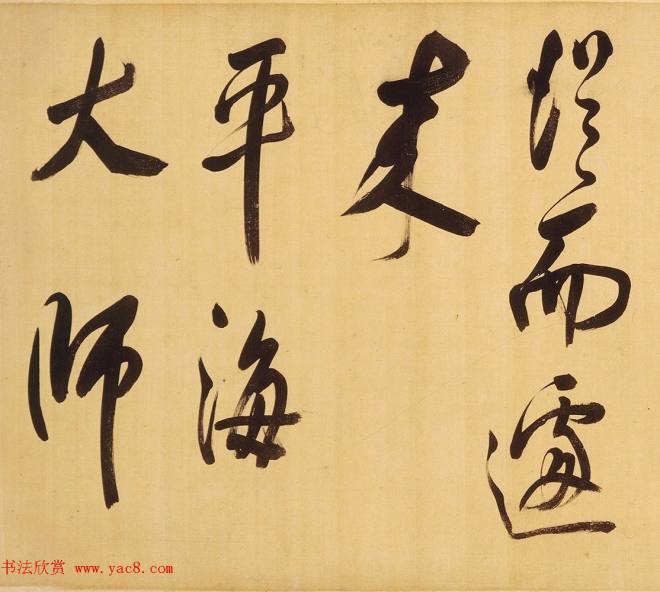 而遽
平海
大師
书法欣赏 www.yac8.com